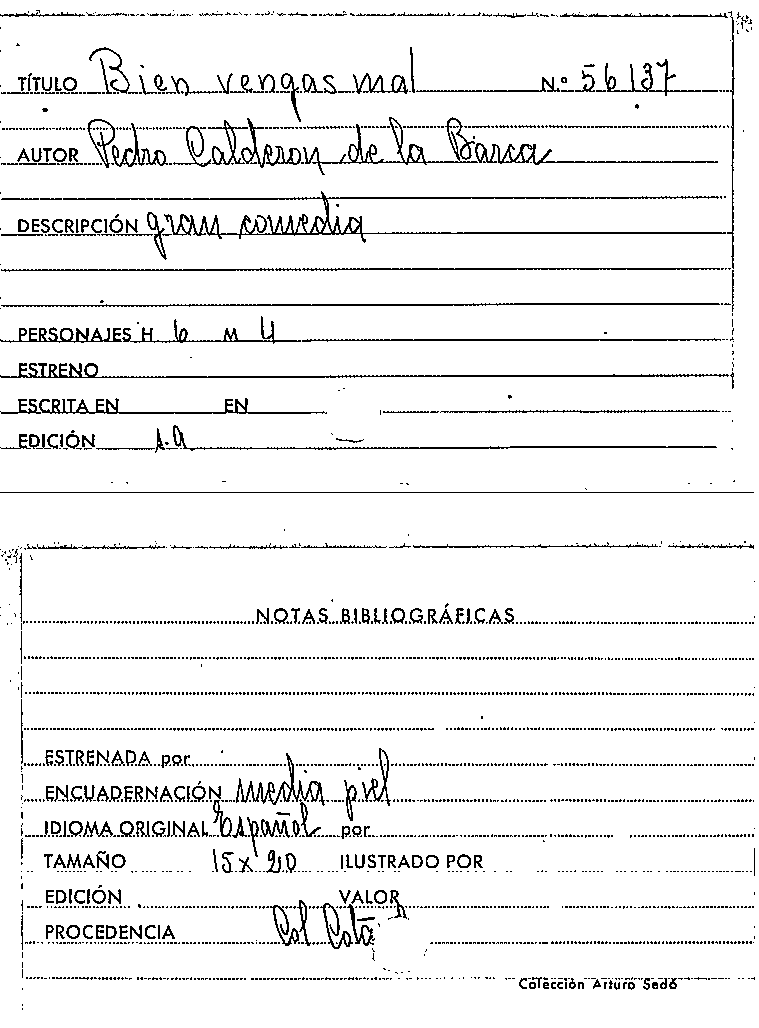 TÍTULO Bien vengas mal N.º 56137
AUTOR Pedro Calderon de la Barca
DESCRIPCIÓN gran comedia
PERSONAJES H 6 M 4
ESTRENO
ESCRITA EN EN
EDICIÓN s.a
NOTAS BIBLIOGRÁFICAS
ESTRENADA por
ENCUADERNACIÓN media piel
IDIOMA ORIGINAL Español por
TAMAÑO 15x20 ILUSTRADO POR
EDICIÓN VALOR
PROCEDENCIA Col
Colección Arturo Sedó